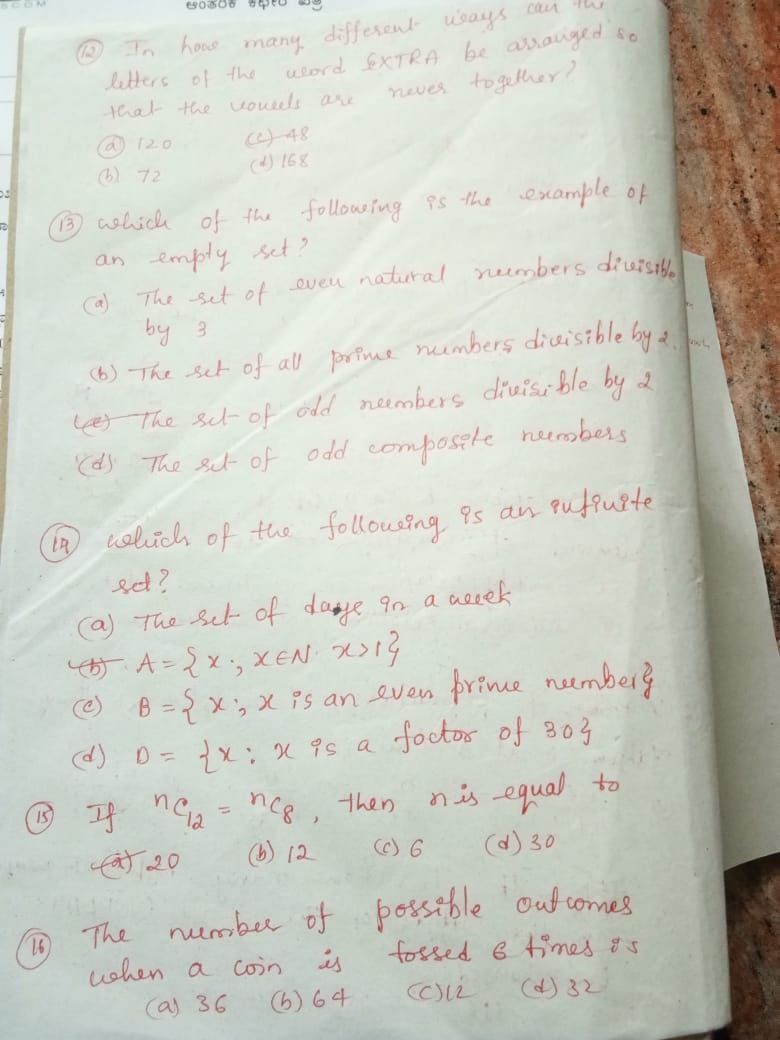 ಆಂತರಿಕ
(12) In how many different ways can the
letters of the word EXTRA be arranged so
that the vowels are never together?
(a) 120 (c) 48
(b) 72 (d) 168
(13) which of the following is the example of
an empty set?
(a) The set of even natural numbers divisible
by 3
(b) The set of all prime numbers divisible by 2.
(c) The set of odd numbers divisible by 2
(d) The set of odd composite numbers
(14) which of the following is an infinite
set?
(a) The set of days in a week
(b) A = {x:, x∈N x>1}
(c) B = {x:, x is an even prime number}
(d) D = {x: x is a factor of 30}
(15) If nC12 = nC8, then n is equal to
(a) 20 (b) 12 (c) 6 (d) 30
(16) The number of possible outcomes
when a coin is tossed 6 times is
(a) 36 (b) 64 (c) 12 (d) 32